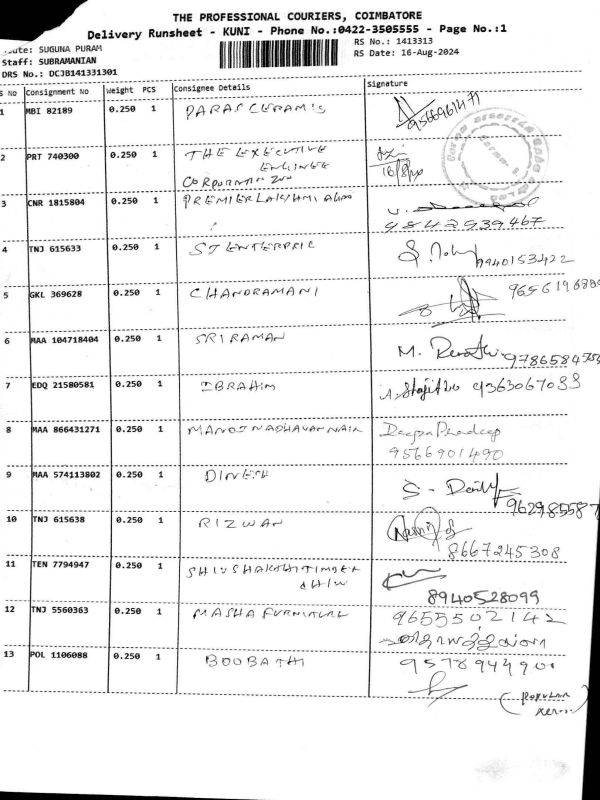 THE PROFESSIONAL COURIERS, COIMBATORE
Delivery Runsheet - KUNI - Phone No.:0422-3505555 - Page No.:1
Route: SUGUNA PURAM RS No.: 1413313
Staff: SUBRAMANIAN RS Date: 16-Aug-2024
DRS No.: DCJB141331301
S No Consignment No Weight PCS Consignee Details Signature
1 MBI 82189 0.250 1 PARAS CERAMIS
9566961471
2 PRT 740300 0.250 1 THE EXECUTIVE
ENGINEE
16/8/24
3 CNR 1815804 0.250 1 PREMIER LAKSHMI
9842939467
4 TNJ 615633 0.250 1 ST ENTERPRIC
9940153422
5 GKL 369628 0.250 1 CHANDRAMANI
6 MAA 104718704 0.250 1 SRIRAMAN
M. 9786584
7 EDQ 21580581 0.250 1 IBRAHIM
9363067033
8 MAA 866431271 0.250 1 MANOJ MADHAVAN NAIR Deepa Pradeep
9566901490
9 MAA 574113802 0.250 1 DINESH
S - 962985587
10 TNJ 615638 0.250 1 RIZWAN
8667245308
11 TEN 7794947 0.250 1 SHIVSHAKTHI TIMBER
8940528099
12 TNJ 5560363 0.250 1 MASHA FURNITURE 9655502142
13 POL 1106088 0.250 1 BOOBATHI 9578944900